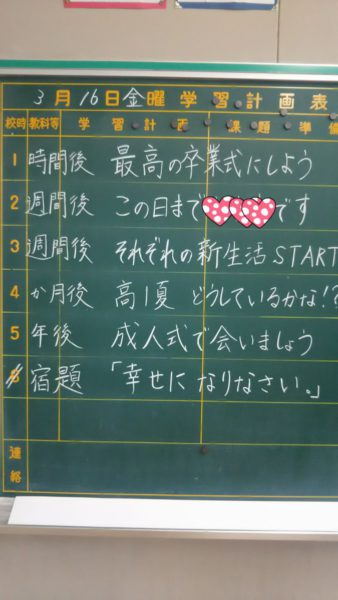 3月16日金曜学習計画表
校時 教科等 学習計画 課題・準備
1 時間後 最高の卒業式にしよう
2 週間後 この日まで です
3 週間後 それぞれの新生活START
4 か月後 高1夏 どうしているかな!?
5 年後 成人式で会いましょう
6 宿題 「幸せに なりなさい。」
連絡